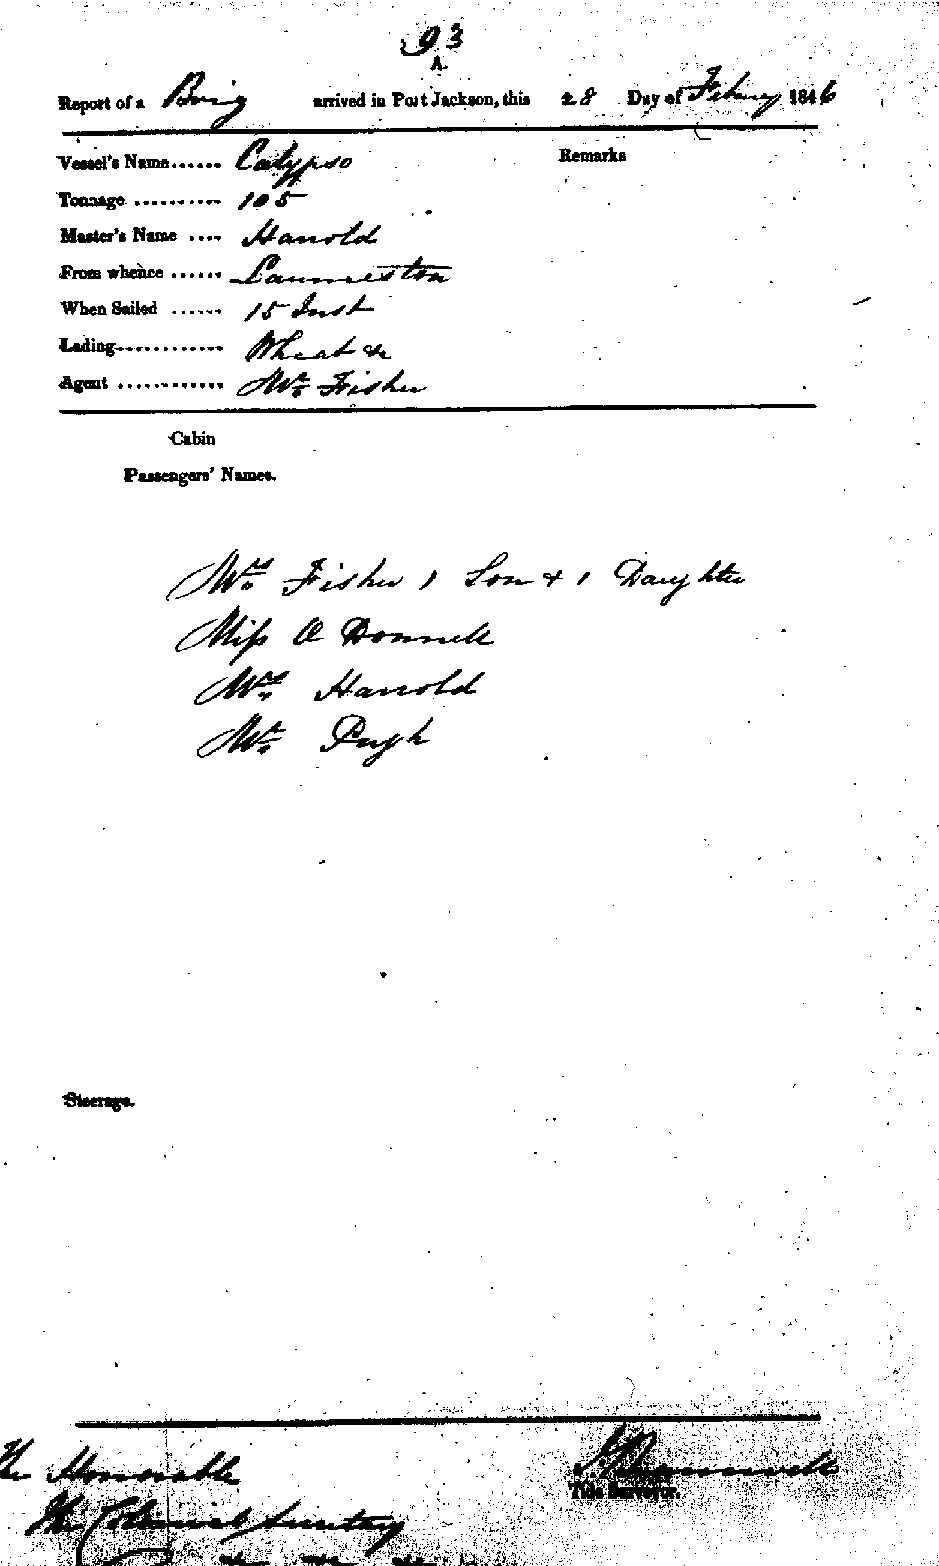 93
A.
Report of a Brig arrived in Port Jackson, this 28 Day of February 1846
Vessel's Name...... Calypso Remarks
Tonnage .......... 105
Master's Name .... Harrold
From whence ...... Launceston
When Sailed ...... 15 Inst
Lading............ Wheat &c
Agent ............ Mr. Fisher
Cabin
Passengers' Names.
Mrs. Fisher 1 Son & 1 Daughter
Miss O Donnell
Mrs. Harrold
Mr. Pugh
Steerage.
The Honorable
Tide Surveyor.
The Colonial Secretary